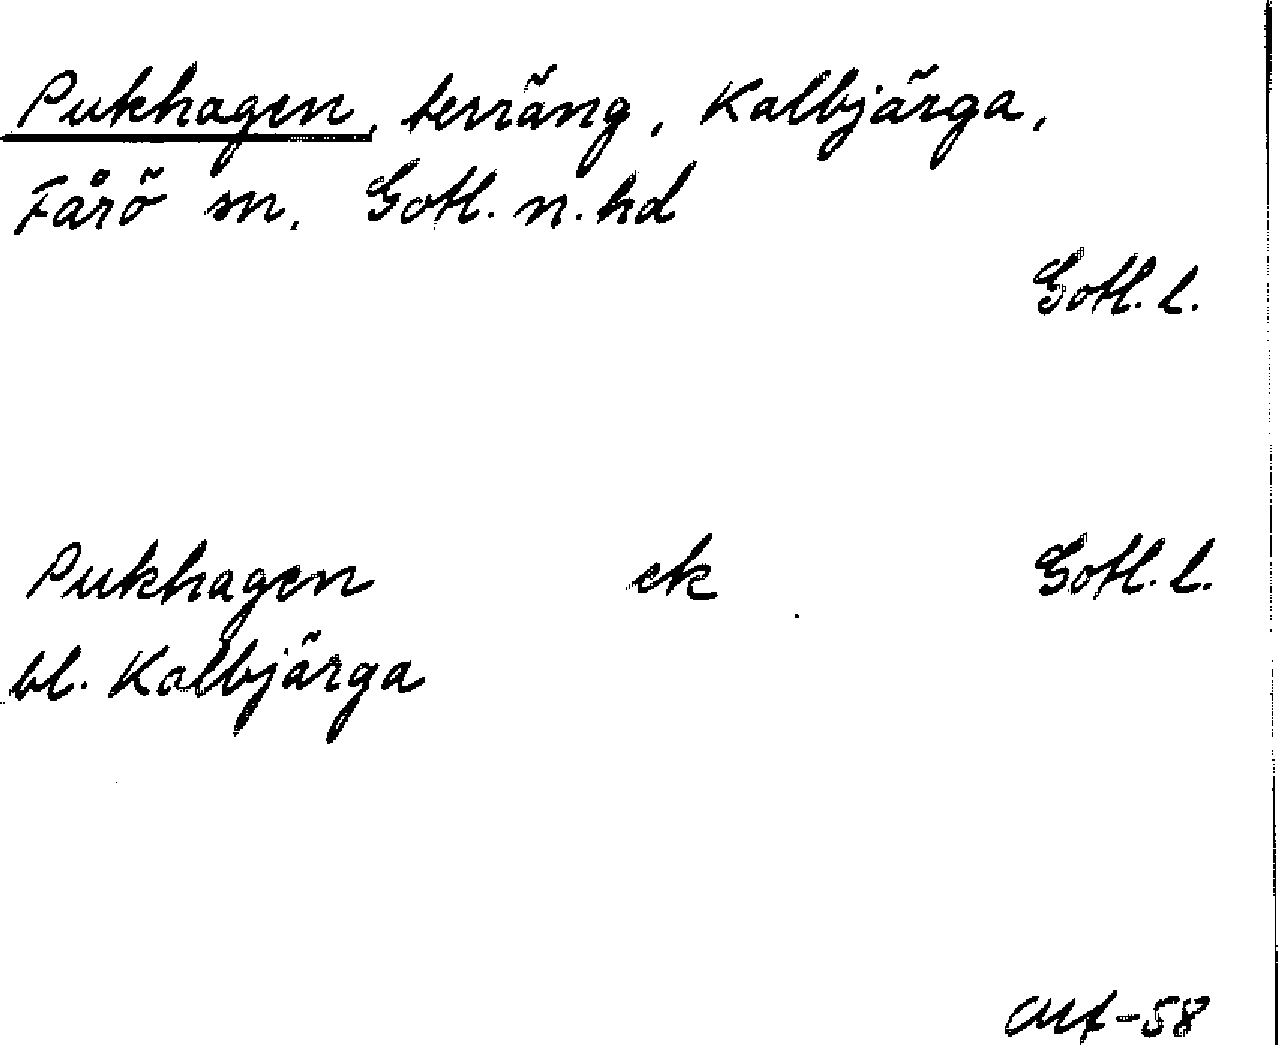 Pukhagen, terräng, Kalbjärga,
Fårö sn, Gotl. n. hd
Gotl. l.
Pukhagen ek Gotl. l.
bl. Kalbjärga
-58